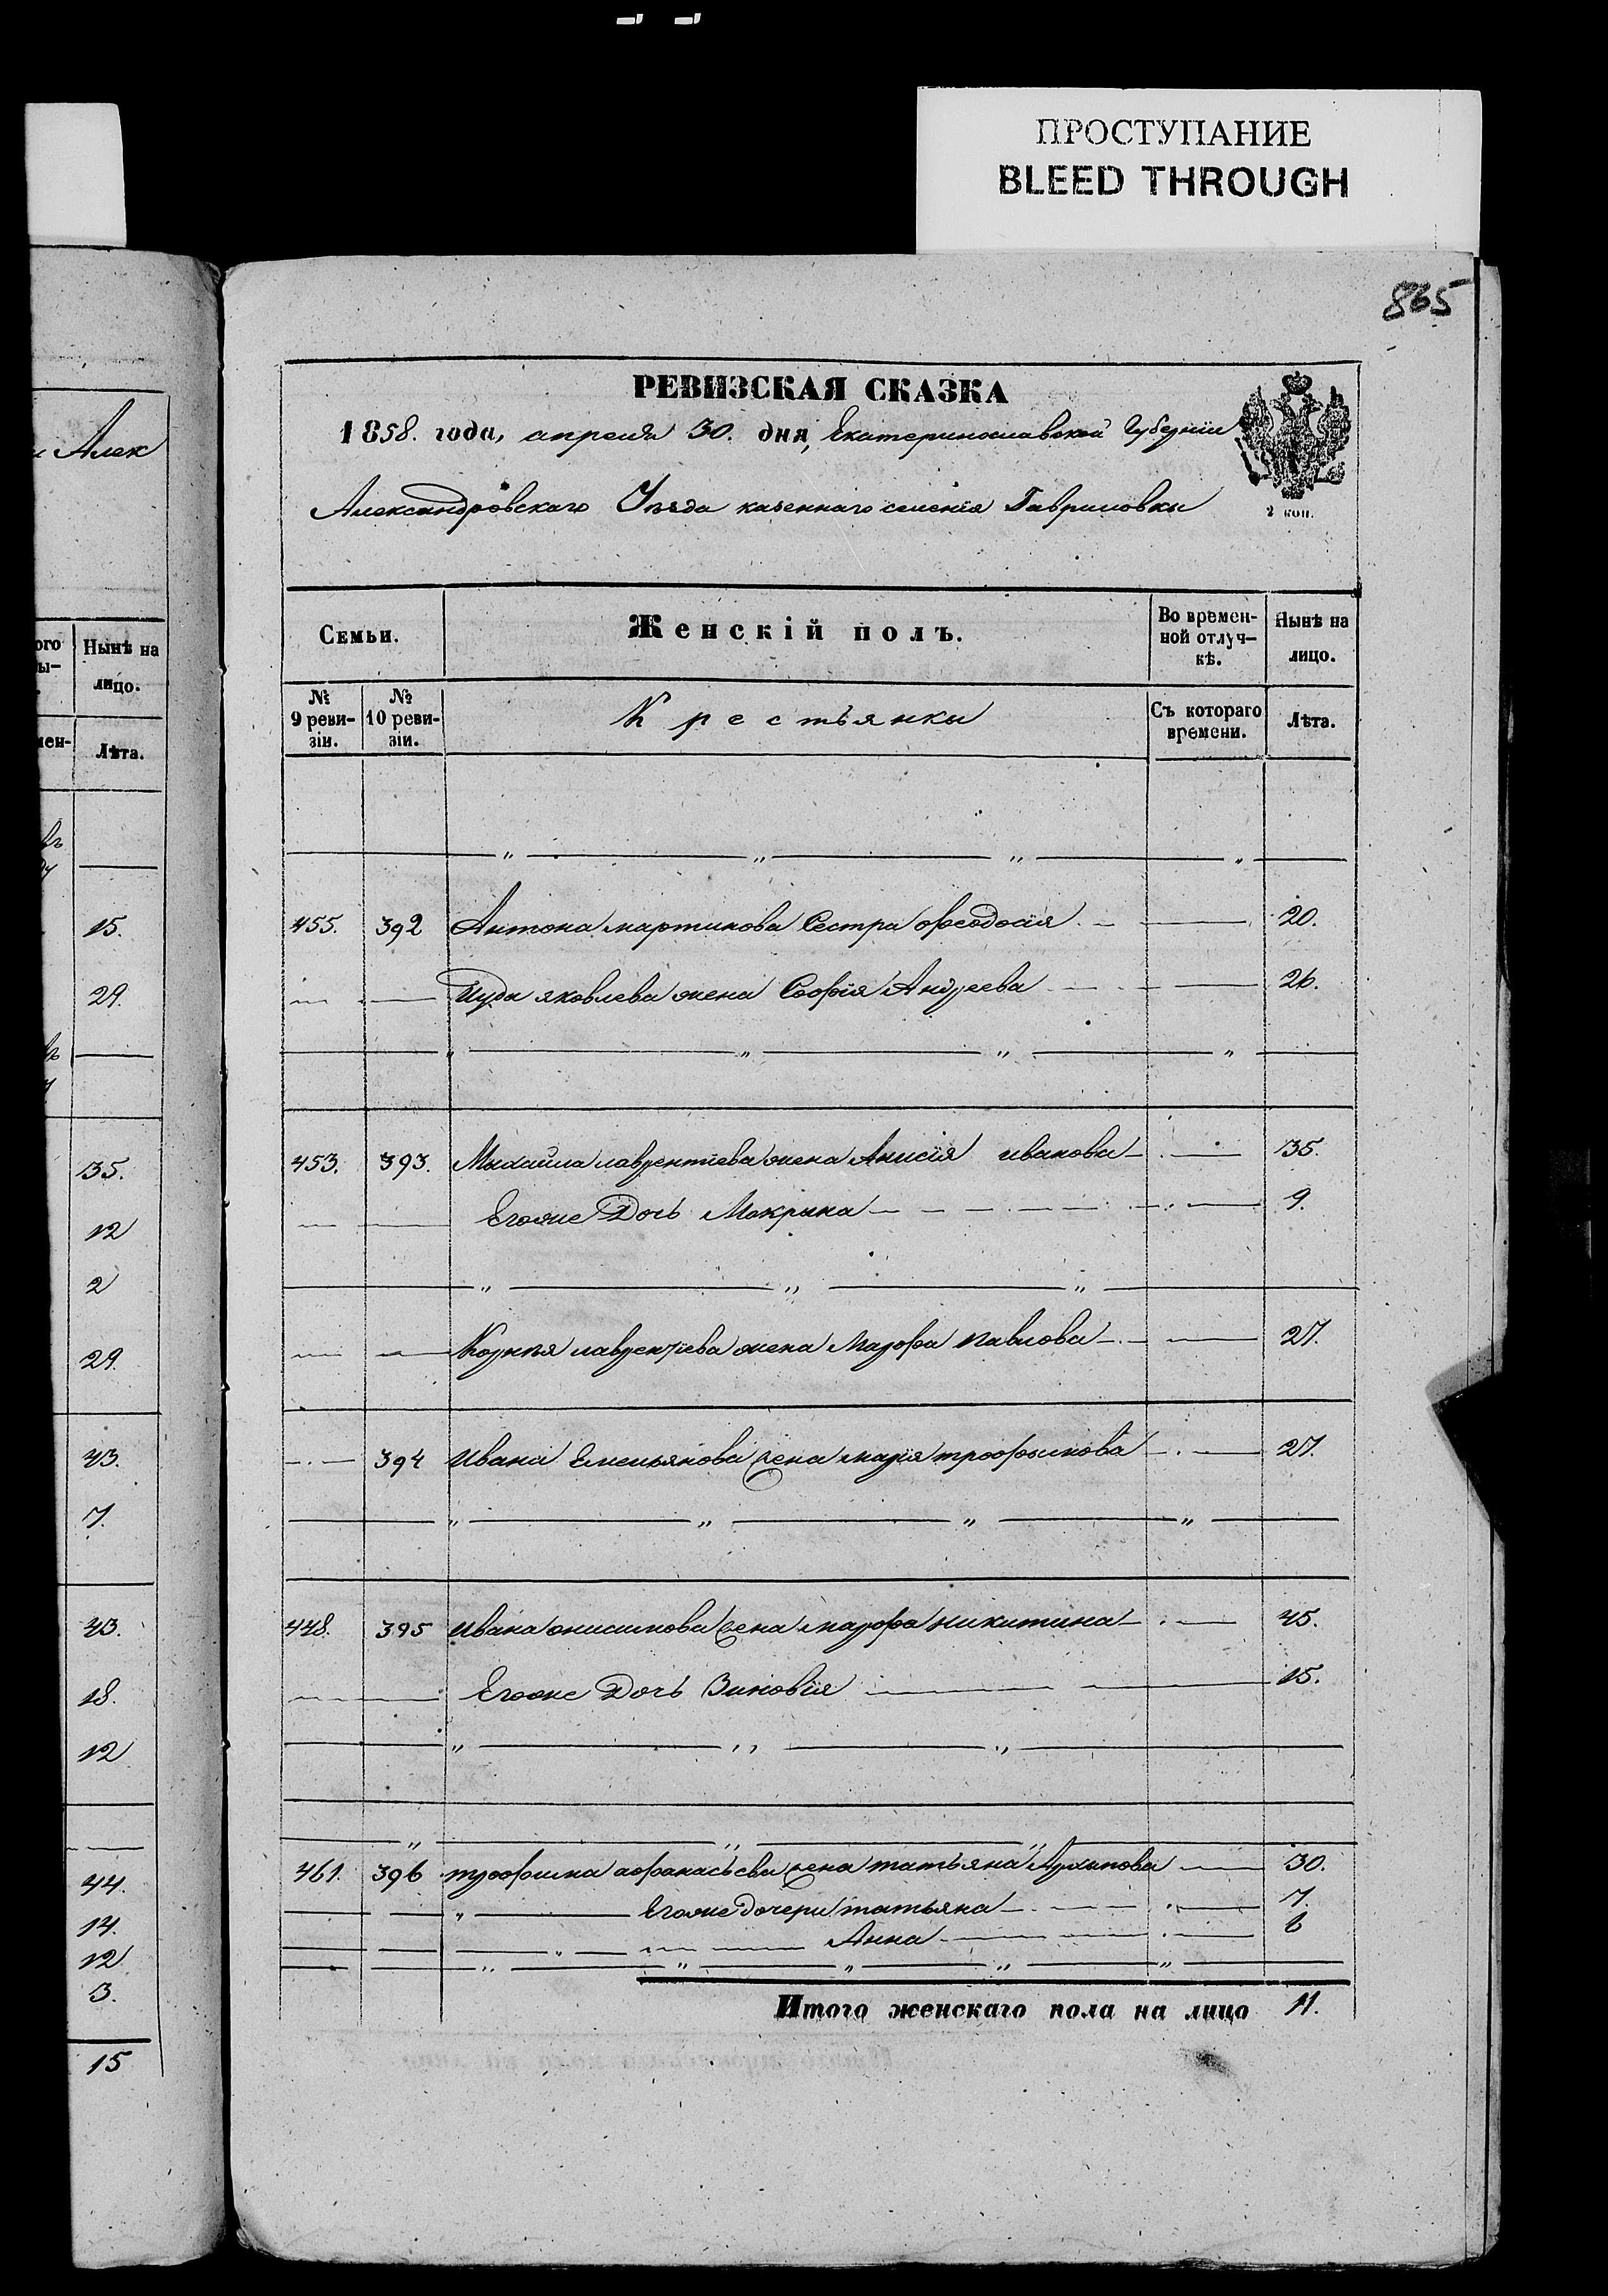 ПРОСТУПАНИЕ
BLEED THROUGH
865
РЕВИЗСКАЯ СКАЗКА
1858. года, апреля 30. дня, Екатеринославской Губерніи
Александровскаго Уезда казеннаго селенія Гавриловки
2 коп.
Семьи. Женскій полъ. Во времен-ной отлуч-кѣ. Нынѣ на лицо.
№ 9 реви-зіи. № 10 реви-зіи. Крестьянки Съ котораго времени. Лѣта.
455. 392 Антона мартинова Сестра Феодосія 20.
Иуда яковлева жена Софія Андреева 26.
453. 393. Михайла лаврентіева жена Анисія иванова 35.
Егоже Дочь Макрина 9.
Корнѣя лаврентіева жена Марфа павлова 27.
394 Ивана Емельянова жена марія трофимова 27.
448. 395 Ивана онисимова жена марфа никитина 45.
Егоже Дочь Зиновія 15.
461. 396 трофима афанасьева жена татьяна Архипова 30.
Егоже дочери татьяна 7.
Анна 6
Итого женскаго пола на лицо 11.
Алек
Нынѣ на
лицо.
Лѣта.
15.
29.
35.
12
2
29.
43.
7.
43.
18.
12
44.
14.
12
3.
15